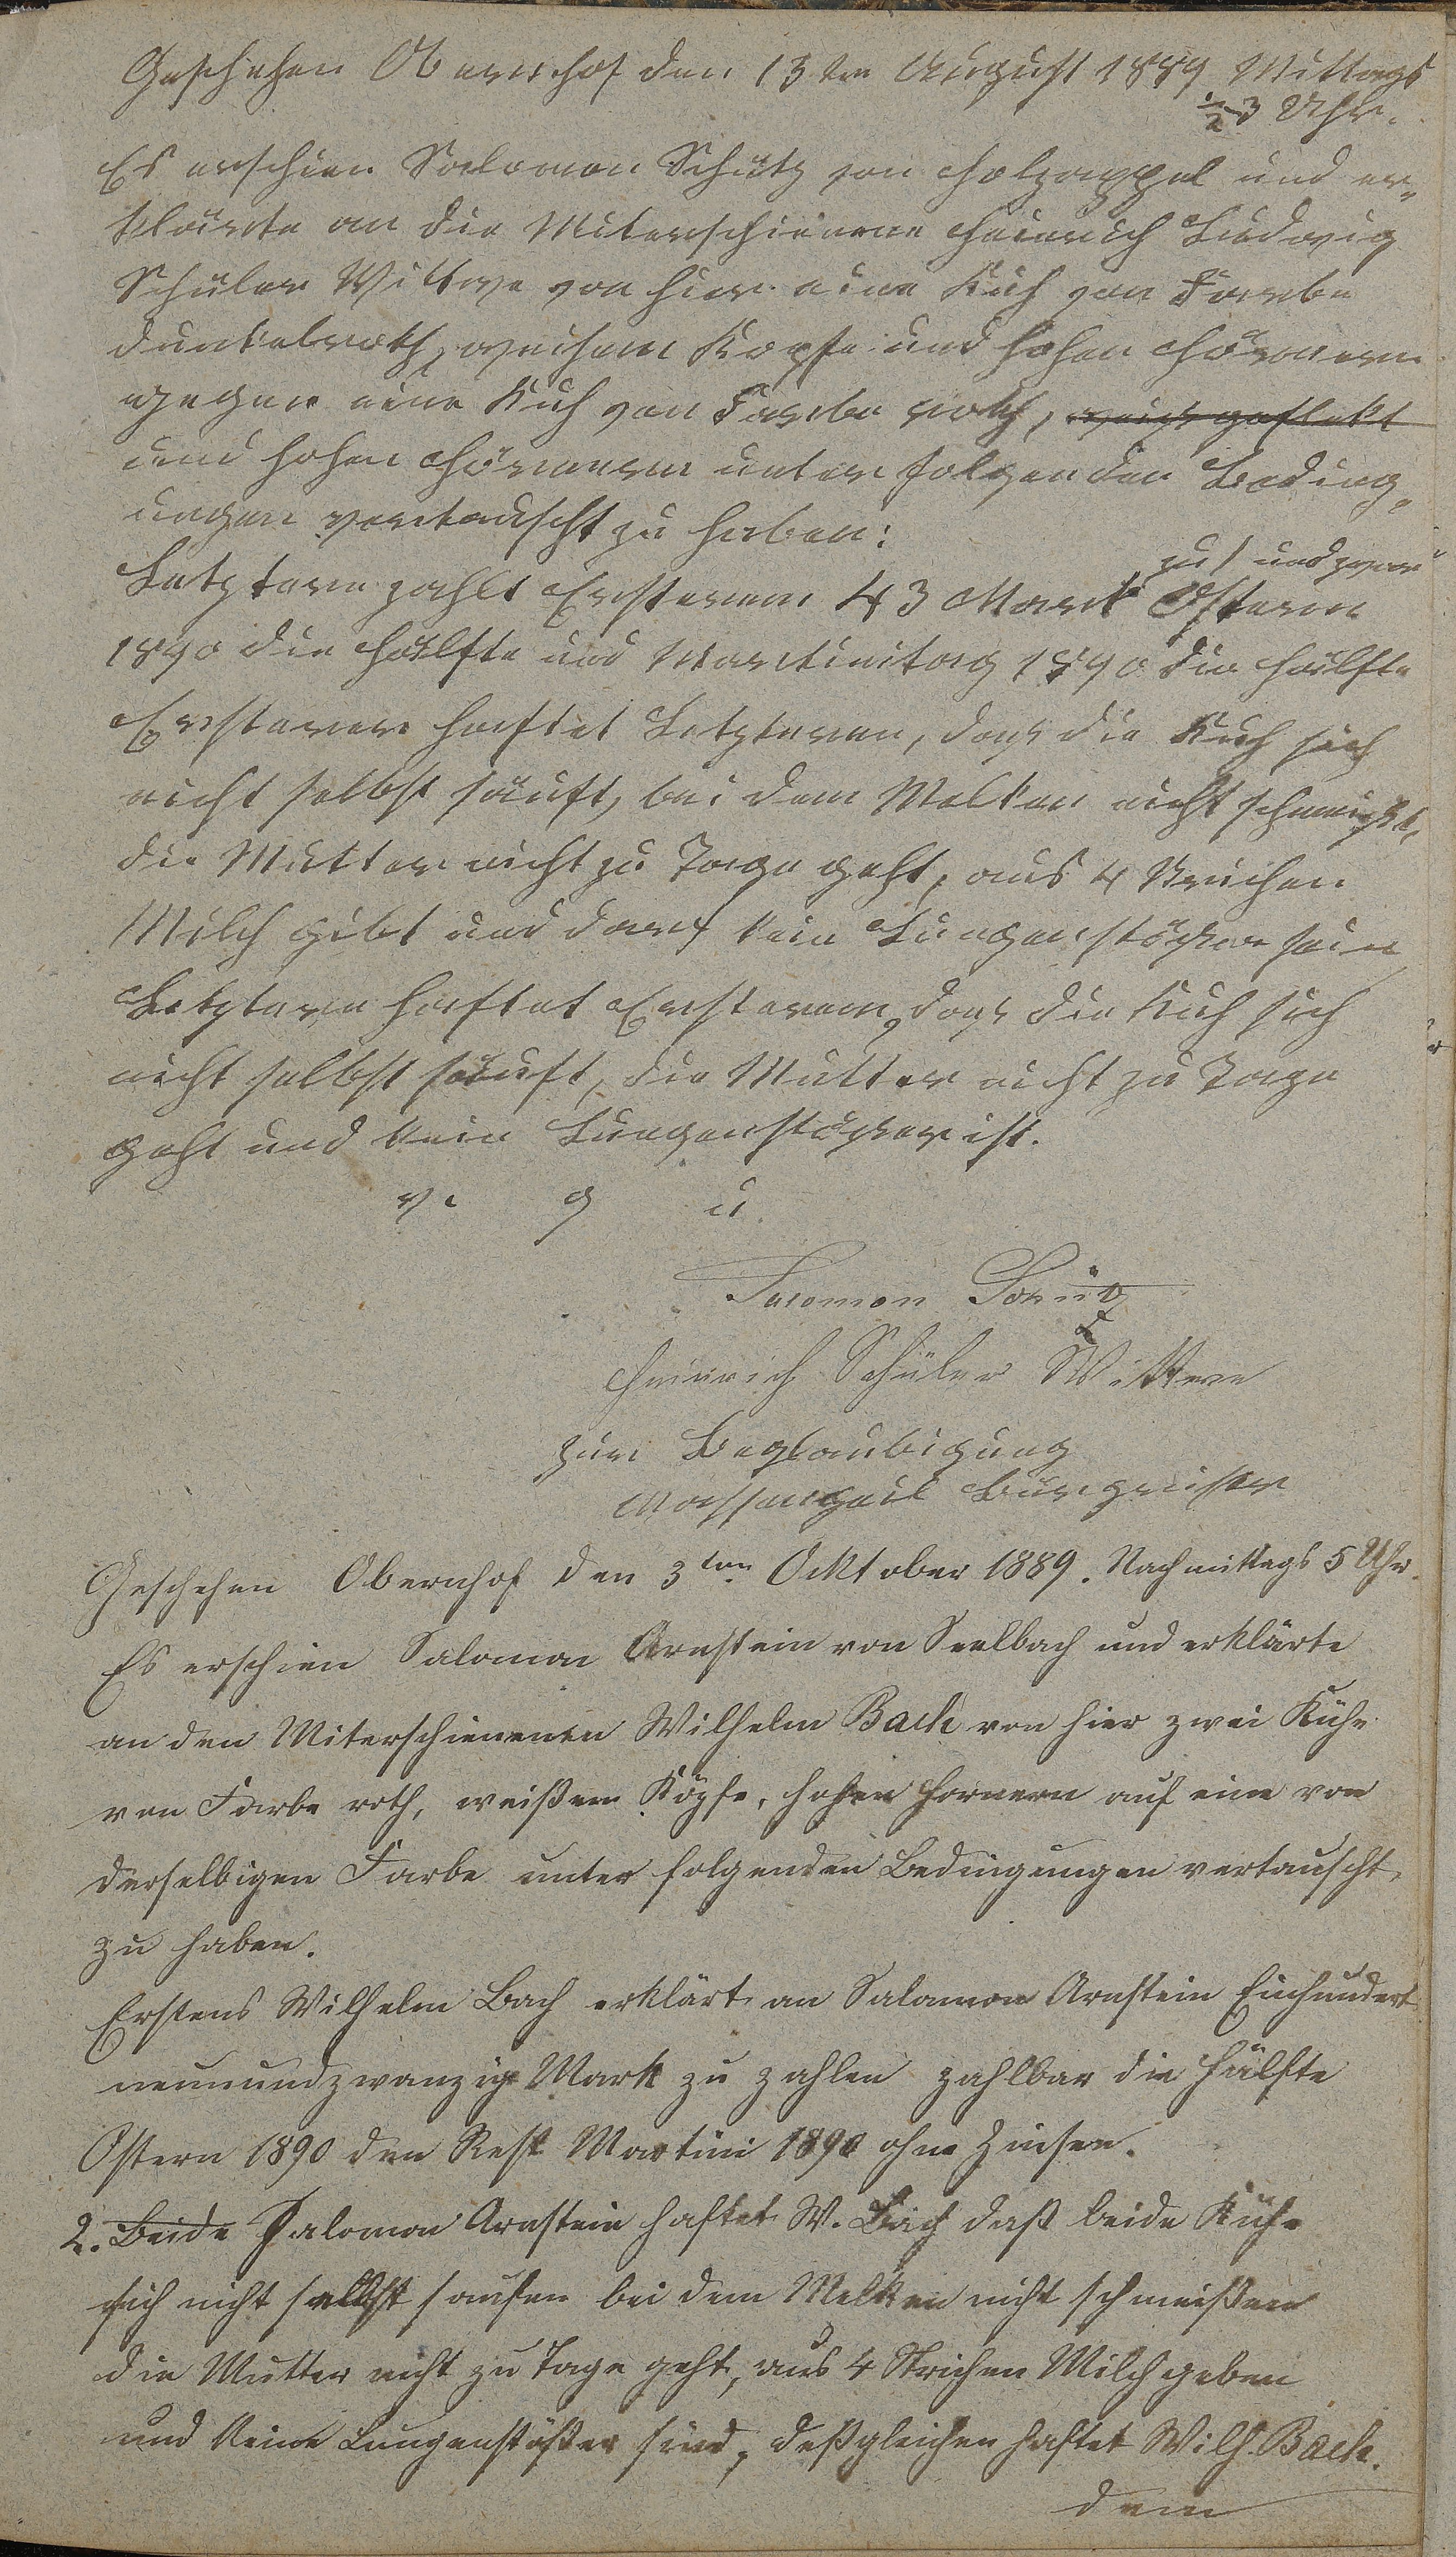 Geschehen Obernhof den 13ten August 1889 Mittags
½3 Uhr.
Es erschien Salomon Schütz von Holzappel und er„
klärte an die Miterschienene Heinrich Ludwig
Schüler Wittwe von hier eine Kuh von Farbe
dunkelroth, weißem Kopfe und hohen Hörnern
gegen eine Kuh von Farbe roth, weiß geflekt
und hohen Hörnern unter folgenden Beding„
ungen vertauscht zu haben:
zu/ und zwar
Letztere zahlt Ersterem 43 Mark Ostern
1890 die Hälfte und Martinitag 1890 die Hälfte
Ersterer haftet Letzteren, daß die Kuh sich
nicht selbst säuft, bei dem Melken nicht schmeißt,
die Mutter nicht zu Tage geht, aus 4 Strichen
Milch gibt und darf kein Lungenstößer sein
Letztere haftet Ersterem, daß die Kuh sich
nicht selbst säuft, die Mutter nicht zu Tage
geht und kein Lungenstößer ist.
v. g u.
Salomon Schütz
Heinrich Schüler Wittwe
zur Beglaubigung
Massengeil Bürgmeister
Geschehen Obernhof den 3ten Ocktober 1889. Nachmittags 5 Uhr.
Es erschien Salomon Arnstein von Seelbach und erklärte
an den Miterschienenen Wilhelm Bach von hier zwei Kühe
von Farbe roth, weißem Köpfe, hohen Hornern auf eine von
derselbigen Farbe unter folgenden Bedingungen vertauscht
zu haben.
Erstens Wilhelm Bach erklärt an Salamon Arnstein Einhundert
neunundzwanzig Mark zu zahlen zahlbar die Hälfte
Ostern 1890 den Rest Martini 1890 ohne Zinsen.
2. Beide Salomon Arnstein haftet W. Bach daß beide Kühe
sich nicht selbst saufen bei dem Melken nicht schmeißen
die Mutter nicht zu Tage geht, aus 4 Strichen Milch geben
und keine Lungenstößer sind, deßgleichen haftet Wilh. Bach.
dem